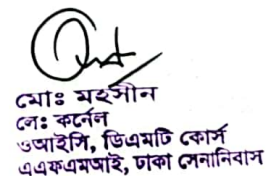 মোঃ মহসীন
লেঃ কর্নেল
ওআইসি, ডিএমটি কোর্স
এএফএমআই, ঢাকা সেনানিবাস